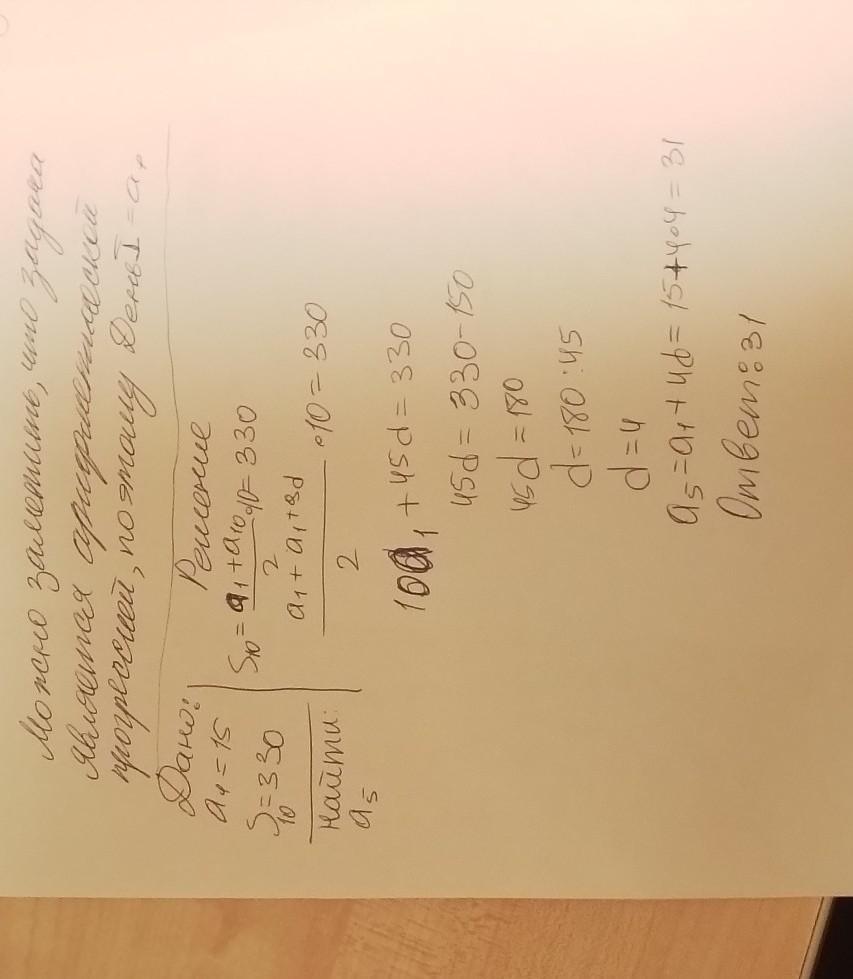 Можно заметить, что задача
является арифметической
прогрессией, поэтому День 1 = a₁
Дано:
a₁ = 15
S₁₀ = 330
Найти:
a₅
Решение
S₁₀ = (a₁ + a₁₀)/2 · 10 = 330
(a₁ + a₁ + 9d)/2 · 10 = 330
10a₁ + 45d = 330
45d = 330 - 150
45d = 180
d = 180 : 45
d = 4
a₅ = a₁ + 4d = 15 + 4·4 = 31
Ответ: 31